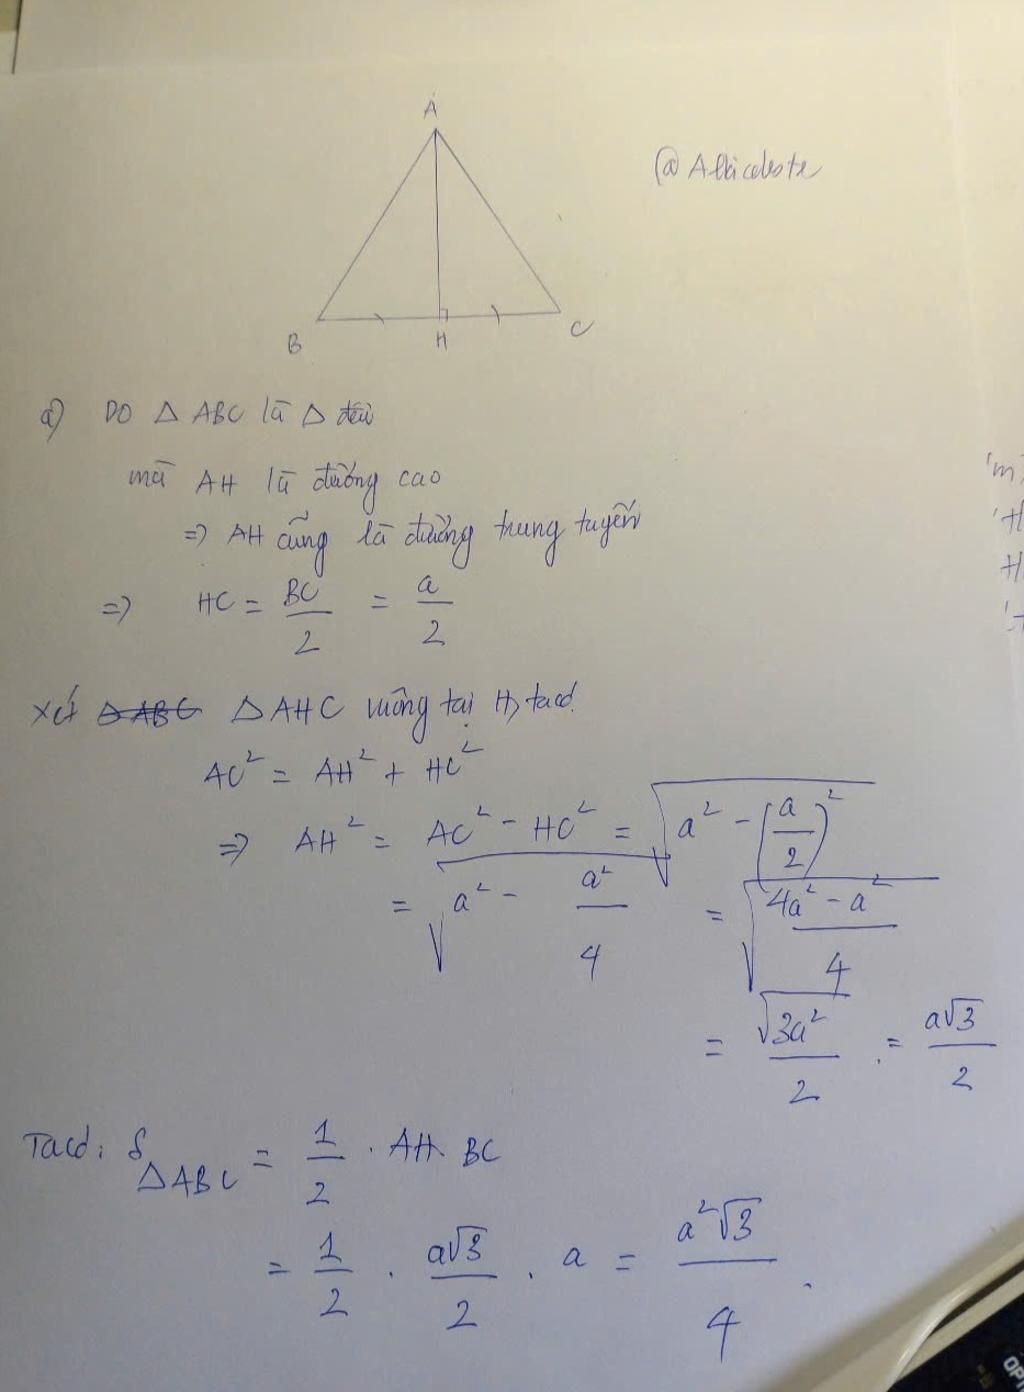 A
@Albiceleste
B
H
C
a) Do △ ABC là △ đều
mà AH là đường cao
=> AH cũng là đường trung tuyến
=> HC = BC/2 = a/2
Xét △ AHC vuông tại H, ta có:
AC² = AH² + HC²
=> AH² = AC² - HC² = √(a² - (a/2)²)
= √(a² - a²/4) = √((4a² - a²)/4)
= √(3a²)/2 = a√3/2
Ta có: S△ABC = 1/2 . AH. BC
= 1/2 . a√3/2 . a = a²√3/4.